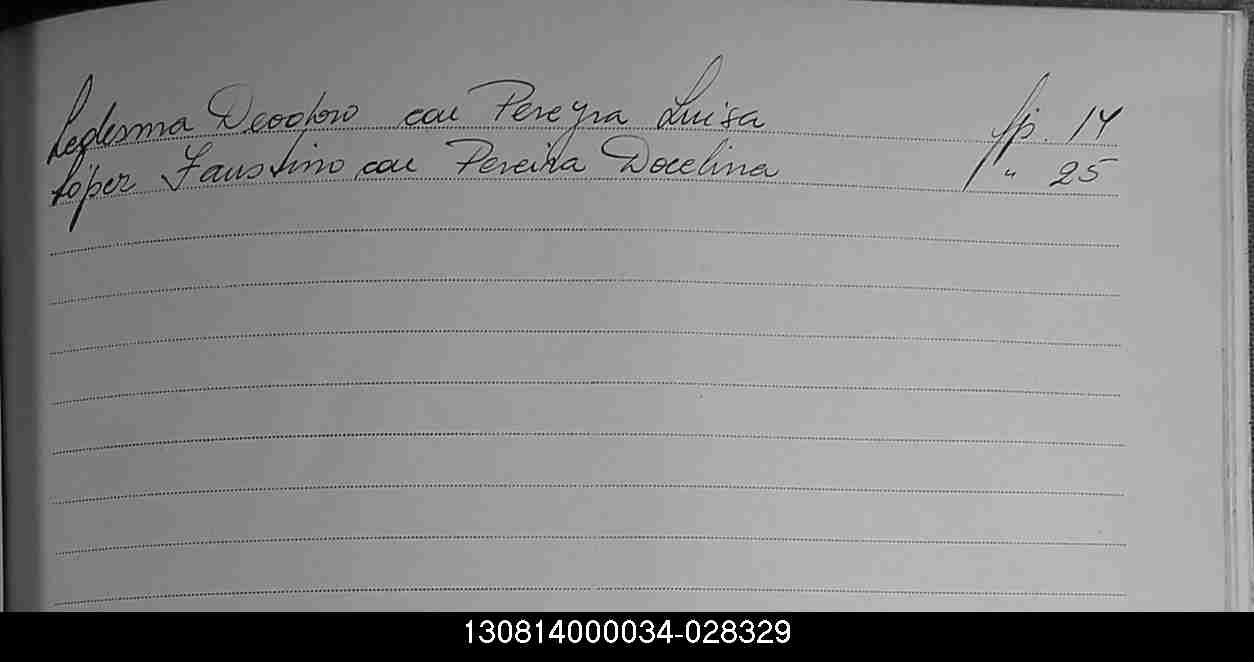 Ledesma Deodoro con Pereyra Luisa fp. 14
López Faustino con Pereira Docelina " 25
130814000034-028329